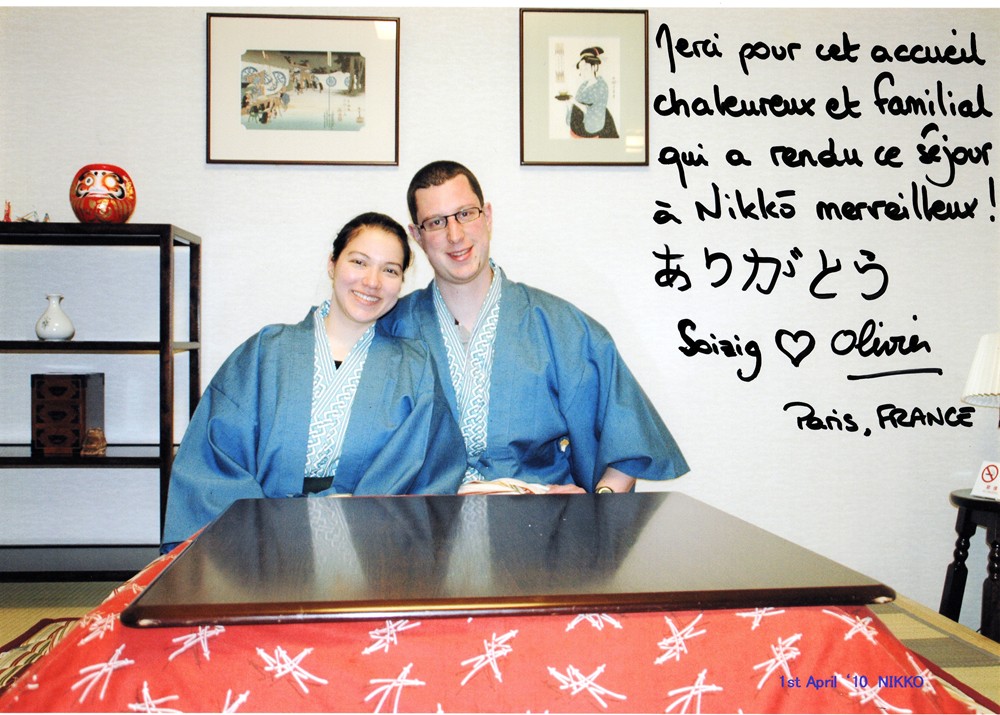 Merci pour cet accueil
chaleureux et familial
qui a rendu ce séjour
à Nikkō merveilleux !
ありがとう
Soizig ♡ Olivier
Paris, FRANCE
1st April '10 NIKKO